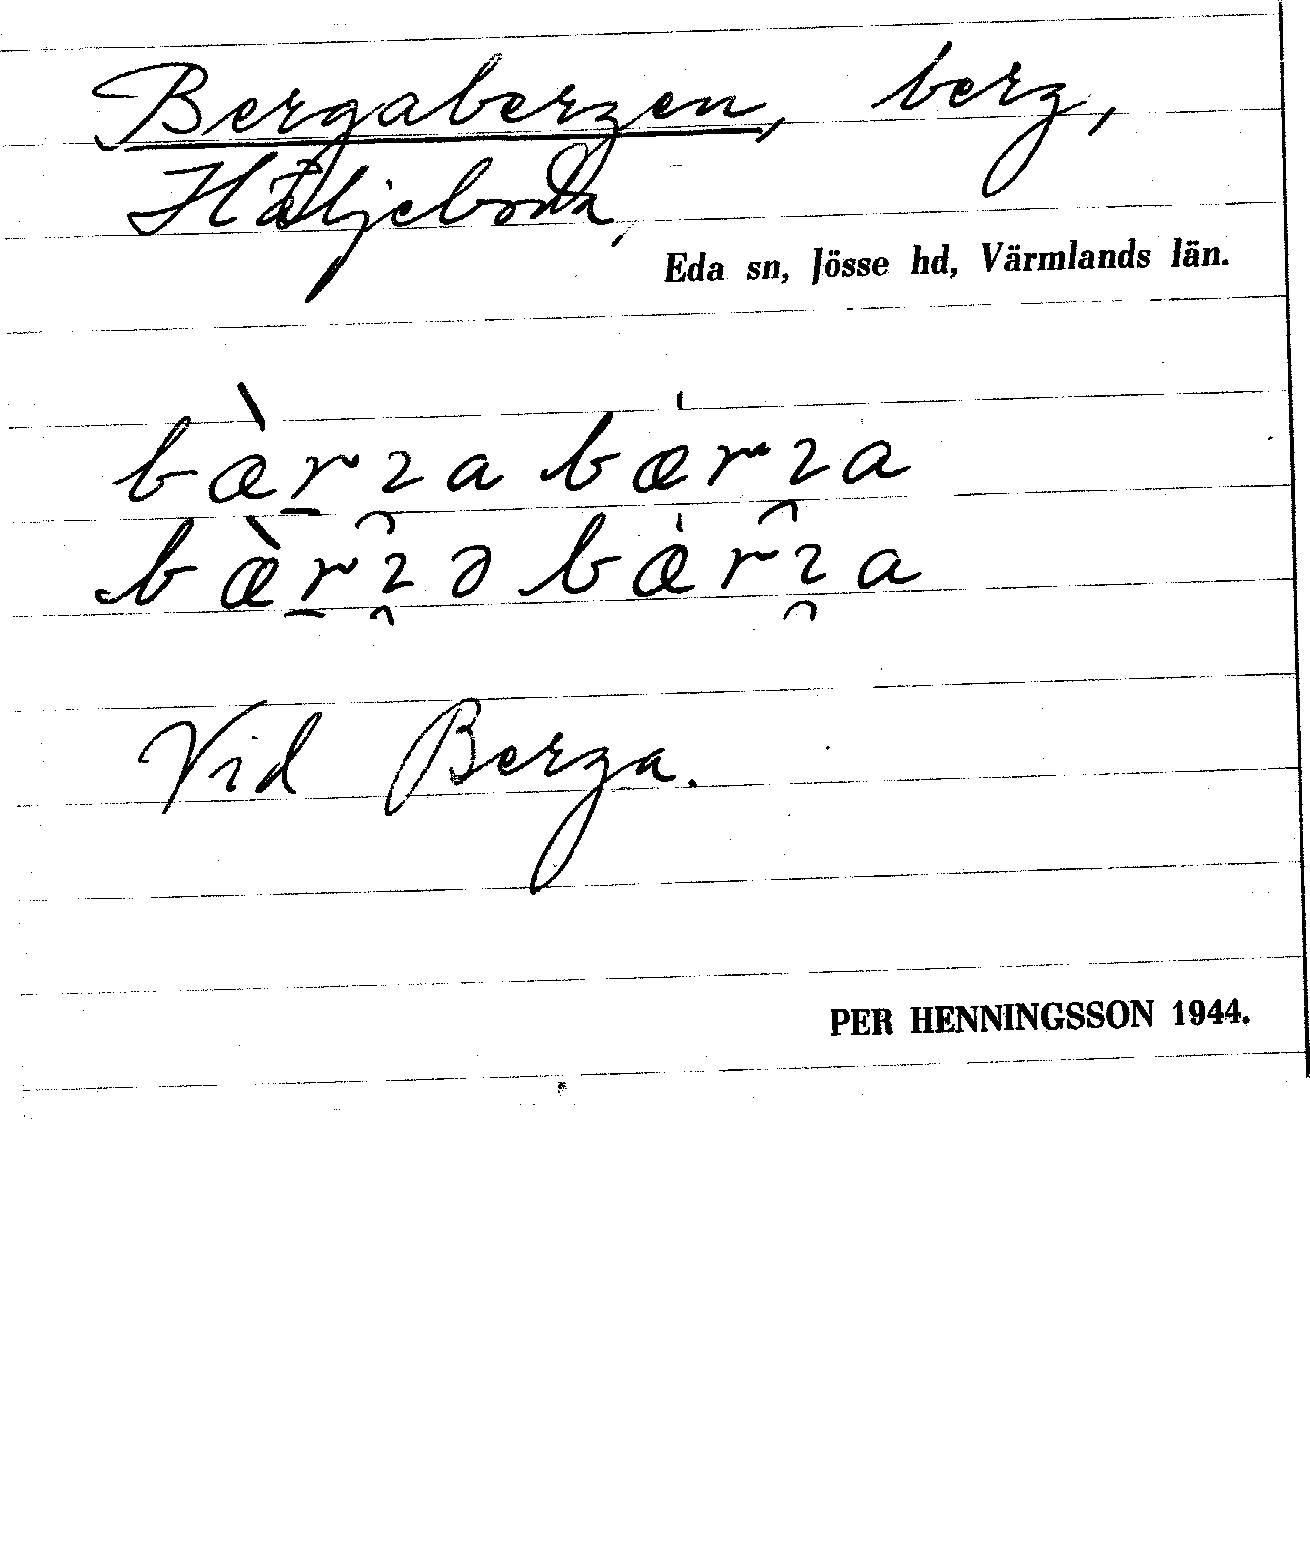 Bergabergen, berg,
Häljeboda,
Eda sn, Jösse hd, Värmlands län.
Vid Berga.
PER HENNINGSSON 1944.